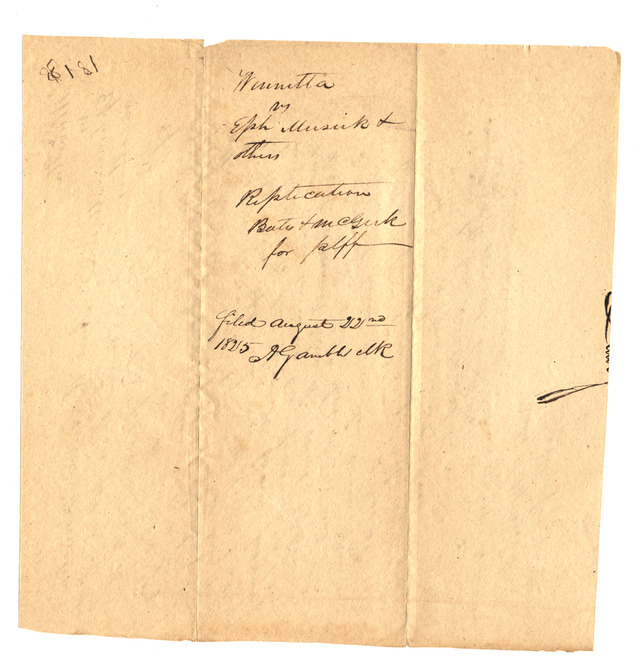 Winnetta
vs
Eph Musick &
others
Replication
Bates & McGirk
for plff
filed August 22nd
1825 A Gamble clk